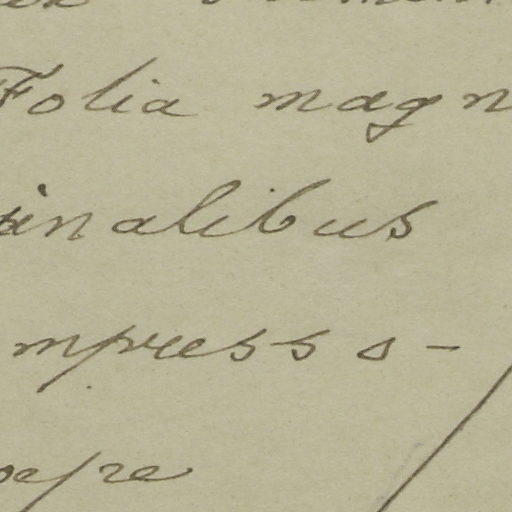 Folia magn
inalibus
mpresso-